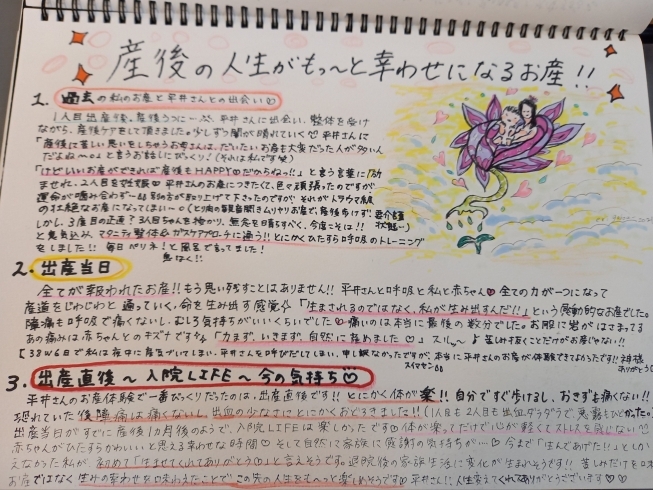 産後の人生がも〜っと幸わせになるお産!!
1. 過去の私のお産と平井さんとの出会い♡
1人目出産後、産後うつに…。平井さんに出会い、整体を受け
ながら、産後ケアをして頂きました。少しずつ闇が晴れていく♡ 平井さんに
「産後に苦しい思いをしちゃうお母さんは、だいたい、お産も大変だった人が多いん
だよね〜。」と言うお話しにびっくり!(それは私です笑)
「けどいいお産ができれば産後もHAPPY♡だからねっ!!」と言う言葉に励
まされ、2人目を妊娠♡ 平井さんのお産につきたくて、色々頑張ったのですが
運命が噛み合わず
の壮絶なお産になってしまい〜
しかし、3度目の正直?3人目ちゃんを授かり、無念を晴らすべく、今度こそは!!
と意気込み、マタニティ整体&ガスケアプローチに通う!!とにかくひたすら口呼吸のトレーニング
をしました!! 毎日ペリネ!と風呂で言ってました!
2. 出産当日
全てが報われたお産!!もう思い残すことはありません!! 平井さんと口呼吸と私と赤ちゃん♡ 全ての力が一つになって
産道をじわじわと通っていく、命を生み出す感覚 「生まれるのではなく、私が生み出すんだ!!」という感動的なお産でした。
陣痛も口呼吸で痛くないし、むしろ気持ちがいいくらいでした♡ 痛いのは本当に最後の数分でした。お股に岩がはさまってる
あの痛みは赤ちゃんとのキズナですね 「力まず、いきまず、自然に産めました♡」スル〜 苦しみ抜くことだけがお産じゃない!!
【38W6日で私は夜中に産気づいてしまい、平井さんを呼びだしてしまい、申し訳なかったですが、本当に平井さんのお産が体験できてよかったです!! 神様
スイマセン ありがとう
3. 出産直後〜入院LIFE〜今の気持ち♡
平井さんのお産体験で一番びっくりだったのは、出産直後です!! とにかく体が楽!! 自分ですぐ歩けるし、おまたも痛くない!!
恐れていた後陣痛は痛くないし、出血の少なさにとにかくおどろきました!!(1人目も2人目も出血ダラダラで、悪露もひどかった。)
出産当日がすでに産後1カ月後のようで、入院LIFEは楽しかったです♡ 体が楽ってだけで心が軽くてストレスを感じない♡
赤ちゃんがひたすらかわいいと思える幸わせな時間♡ そして自然に家族に感謝の気持ちが…♡ 今まで「ほんであげた!!」としか
えなかった私が、初めて「生ませてくれてありがとう♡」と言えそうです。退院後の家族生活に変化が生まれそうです!! 苦しみだけを味
お産ではなく 生みの幸わせを味わえたことで この先の人生をも〜っと楽しめそうです♡ 平井さん!! 人生変えてくれてありがとうございます♡♡